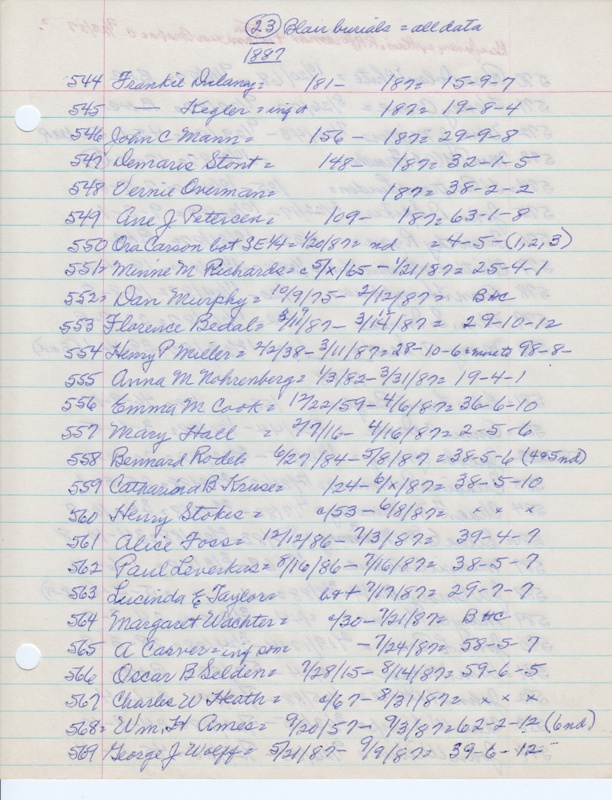 (23) Blair burials = all data
1887
544 Frankie Dulany = 181- 187= 15-9-7
545 — Kegler = inf 187= 19-8-4
546 John C Mann = 156 - 187= 29-9-8
547 Demaris Stout = 148- 187= 32-1-5
548 Vernie Overman = 187= 38-2-2
549 Ane J Petersen = 109- 187= 63-1-8
550 Ora Carson bot SE 1/4 = 1/20/87= nd = 4-5-(1,2,3)
551= Minne M Richards = c 5/x/65 - 1/21/87= 25-4-1
552= Dan Murphy = 10/9/75 - 2/12/87= BHC
553 Florence Bedal = 87- 87= 29-10-12
554 Henry P Mieler = 2/2/38- 3/11/87= 28-10-6 = 98-8-
555 Anna M Nohrenberg = 1/3/82- 3/31/87= 19-4-1
556 Emma M Cook = 12/22/59- 4/6/87= 36-6-10
557 Mary Hall = 2/7/16- 4/16/87= 2-5-6
558 Bennard Rodeb- 6/27/84- 5/8/87= 38-5-6 (4&5 nd)
559 Catharina B Kruse = 1/24- 6/x/87= 38-5-10
560 Henry Stokes = c/53- 6/8/87= x x x
561 Alice Foss = 12/12/86- 7/3/87= 39-4-7
562 Paul Leverkus = 8/16/86- 7/16/87= 38-5-7
563 Lucinda E Taylor = bot 7/17/87= 29-7-7
564 Margaret Wachter = c/30- 7/21/87= BHC
565 A Carver = inf son -7/24/87= 58-5-7
566 Oscar B Selden = 7/28/15- 8/14/87= 59-6-5
567 Charles W Heath = c/67- 8/31/87= x x x
568= Wm. H Ames = 9/20/57- 9/3/87= 62-2-12 (6 nd)
569 George J Wolff = 5/21/87- 9/9/87= 39-6-12